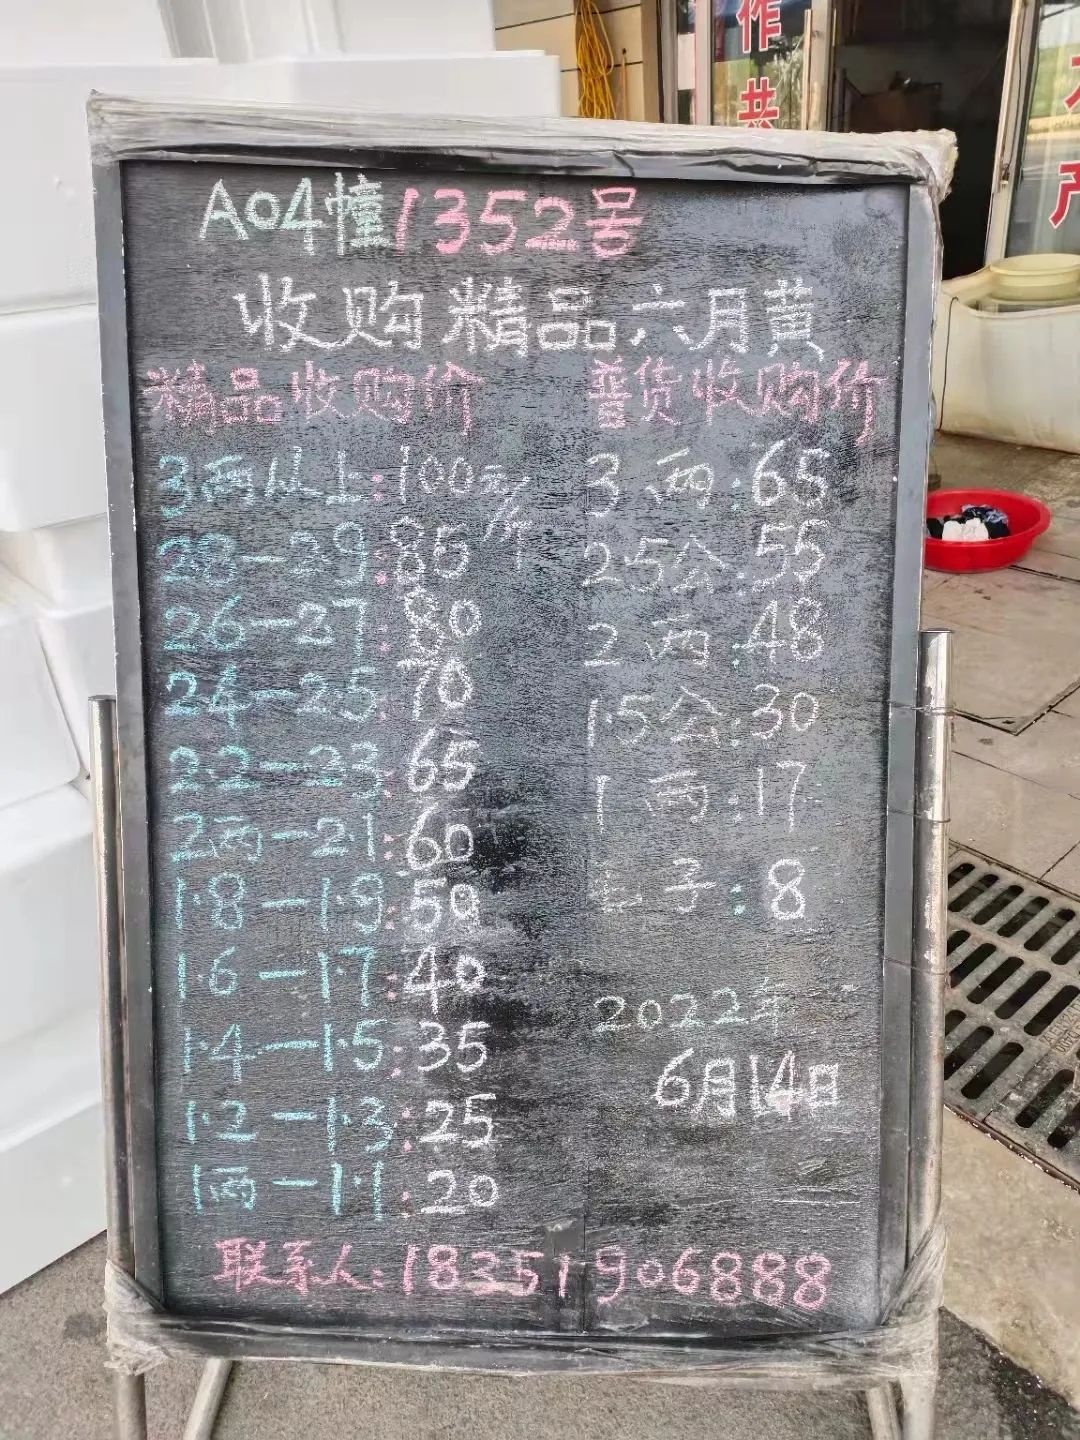 作共
产
A04幢1352号
收购精品六月黄
精品收购价
3两以上:100元/斤
28-29:85
26-27:80
24-25:70
2.2-23:65
2两-21:60
1.8-1.9:50
1.6-1.7:40
1.4-1.5:35
1.2-1.3:25
1两-1.1:20
普货收购价
3两:65
25公:55
2两:48
1.5公:30
1两:17
子:8
2022年
6月14日
联系人:18251906888